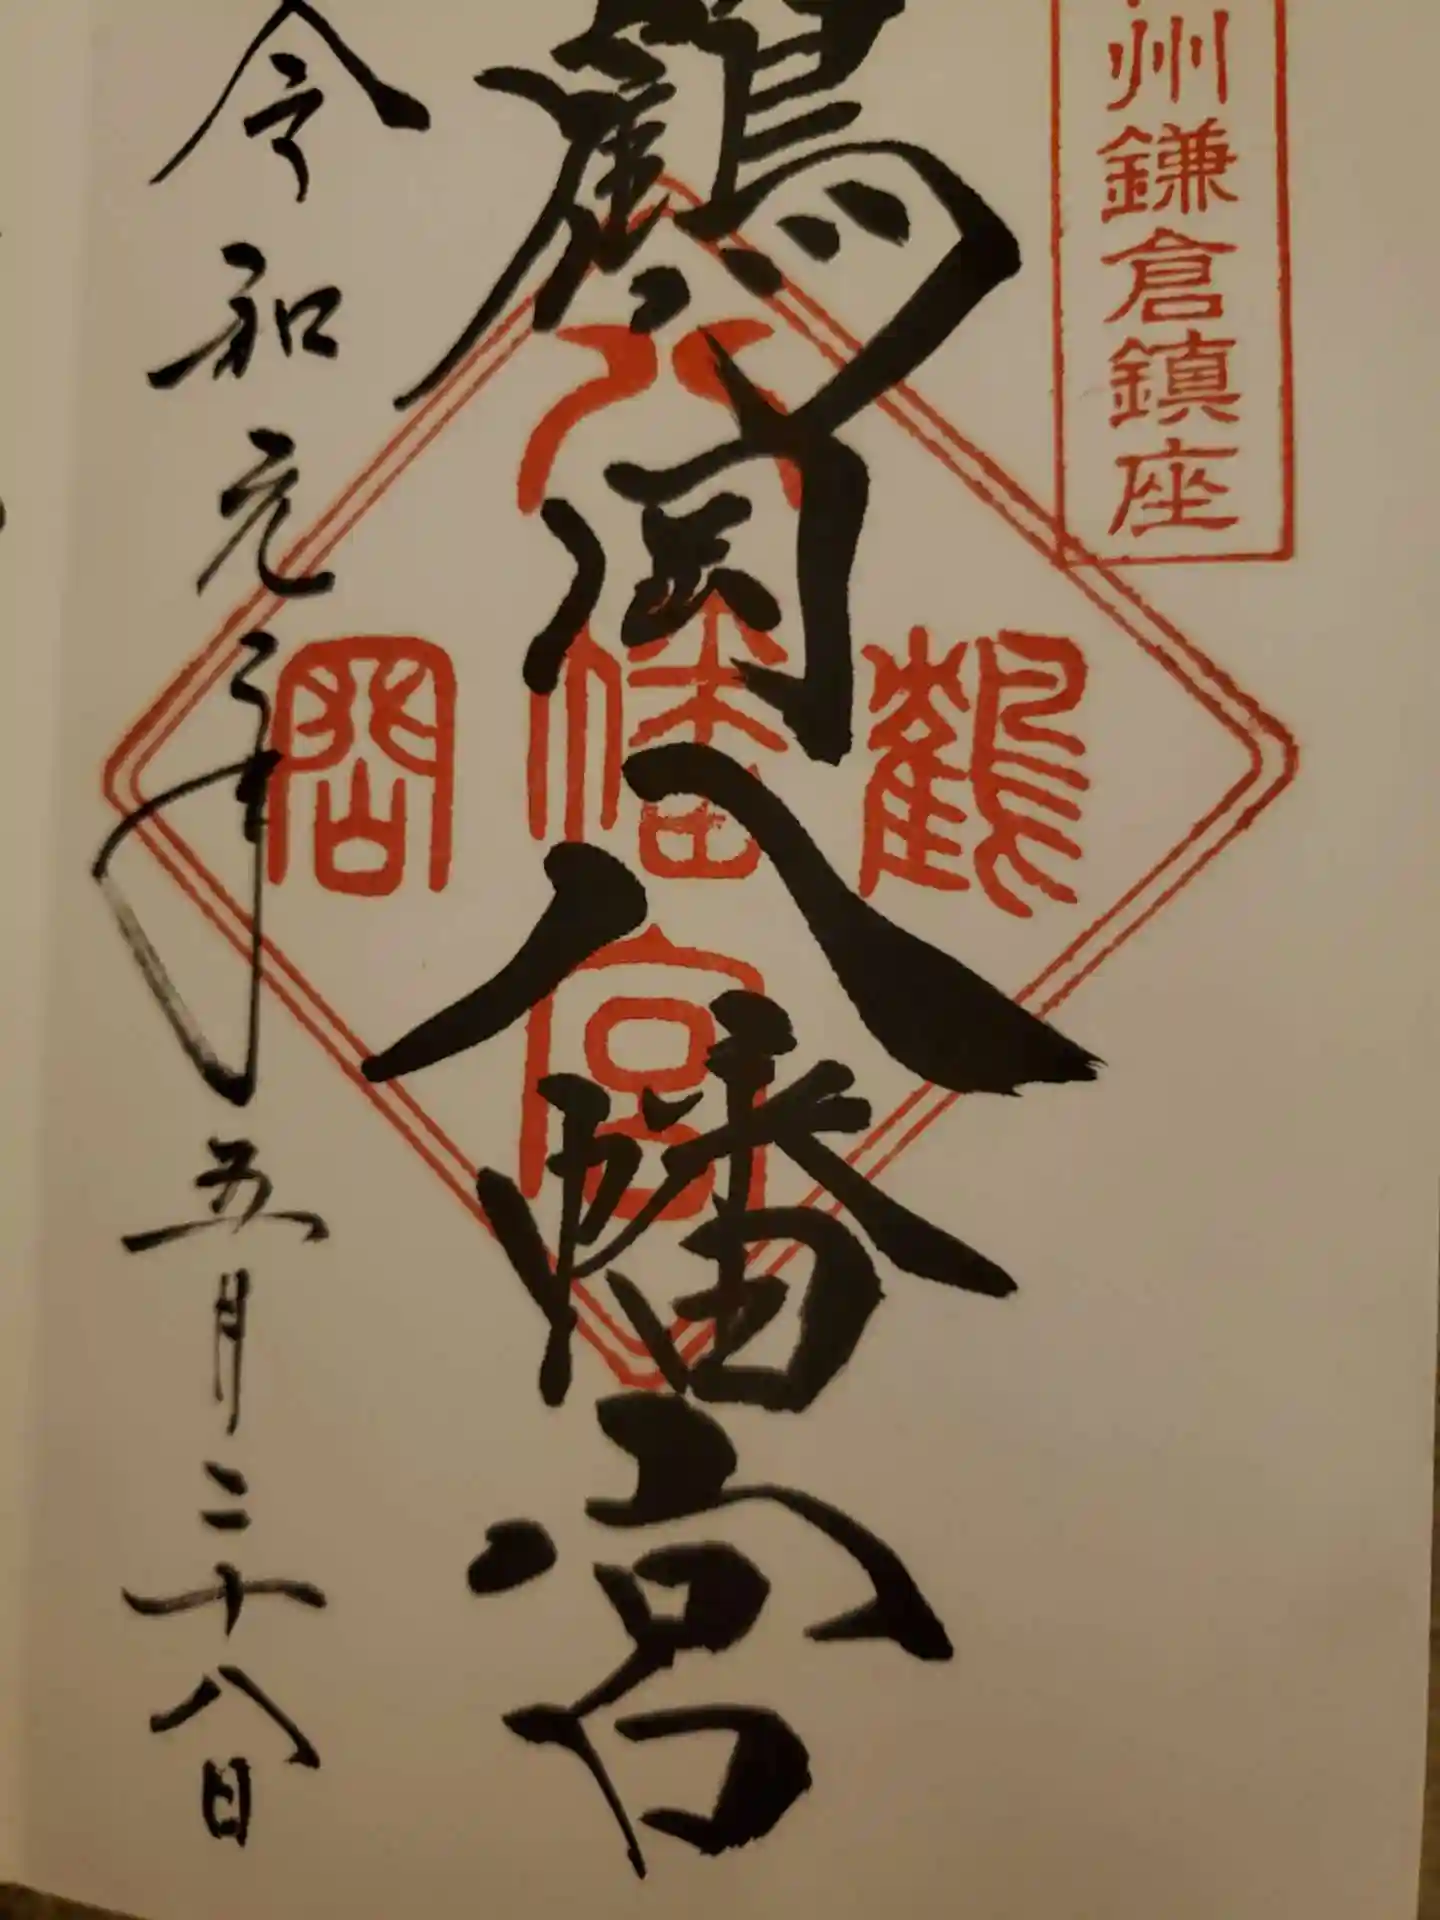 州鎌倉鎮座
鶴岡八幡宮
八幡宮
鶴
岡
令和元年五月二十八日